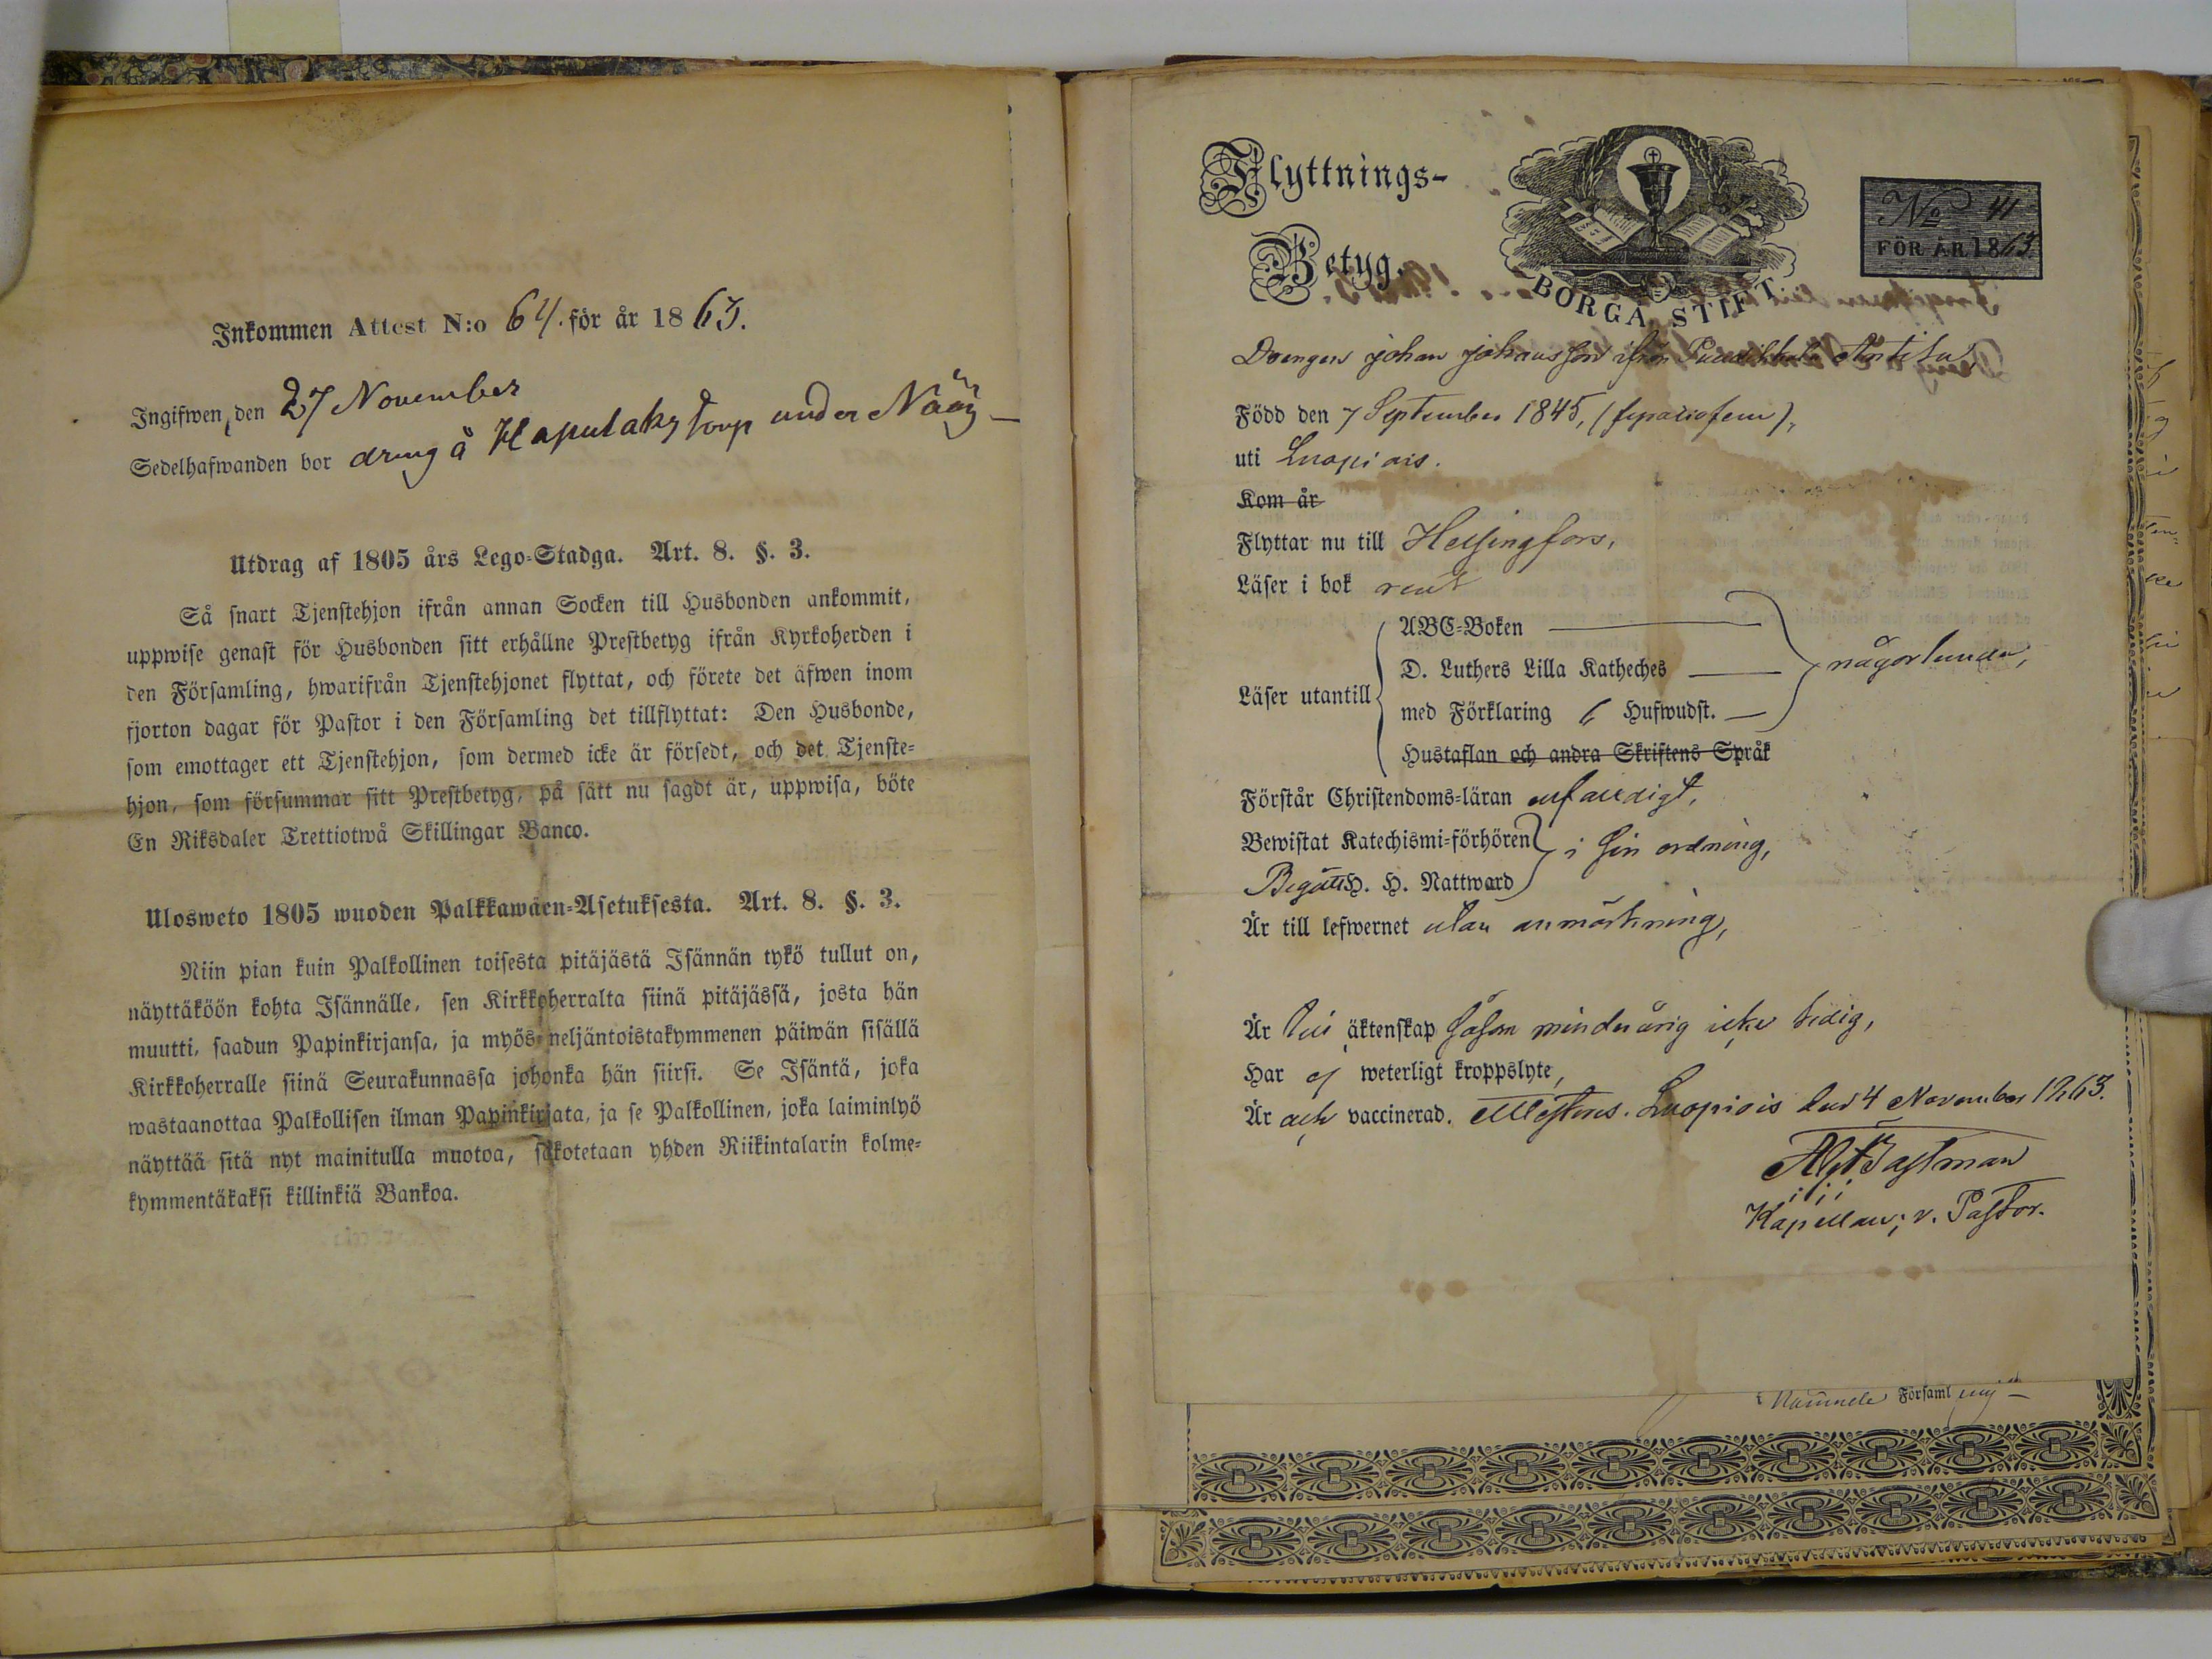 Inkommen Attest N:o 64. för år 1863.
Ingifwen, den 27 November
Sedelhafwanden bor dräng å Kapulaks torp under Nääs
Utdrag af 1805 års Lego-Stadga. Art. 8. §. 3.
Så snart Tjenstehjon ifrån annan Socken till Husbonden ankommit,
uppwise genast för Husbonden sitt erhållne Prestbetyg ifrån Kyrkoherden i
den Församling, hwarifrån Tjenstehjonet flyttat, och förete det äfwen inom
fjorton dagar för Pastor i den Församling det tillflyttat: Den Husbonde,
som emottager ett Tjenstehjon, som dermed icke är försedt, och det Tjenste-
hjon, som försummar sitt Prestbetyg, på sätt nu sagdt är, uppwisa, böte
En Riksdaler Trettiotwå Skillingar Banco.
Ulosweto 1805 wuoden Palkkawäen-Asetuksesta. Art. 8. §. 3.
Niin pian kuin Palkollinen toisesta pitäjästä Isännän tykö tullut on,
näyttäköön kohta Isännälle, sen Kirkkoherralta siinä pitäjässä, josta hän
muutti, saadun Papinkirjansa, ja myös neljäntoistakymmenen päiwän sisällä
Kirkkoherralle siinä Seurakunnassa johonka hän siirsi. Se Isäntä, joka
wastaanottaa Palkollisen ilman Papinkirjata, ja se Palkollinen, joka laiminlyö
näyttää sitä nyt mainitulla muotoa, sakotetaan yhden Riikintalarin kolme-
kymmentäkaksi killinkiä Bankoa.
Flyttnings-
Betyg.
BORGA STIFT
No 41
FÖR ÅR 1863.
Drengen Johan Johansson ifrån
Född den 7 September 1845, (fyratiofem),
uti Luopiois.
Kom år
Flyttar nu till Helsingfors,
Läser i bok rent
Läser utantill
ABC-Boken
D. Luthers Lilla Katheches
med Förklaring 6 Hufwudst.
Hustaflan och andra Skriftens Språk
någorlunda,
Förstår Christendoms-läran enfaldigt,
Bewistat Katechismi-förhören
Begått H. H. Nattward
i sin ordning,
Är till lefwernet utan anmärkning,
Är till äktenskap såsom minderårig icke ledig,
Har ej weterligt kroppslyte,
Är ock vaccinerad. Attesteras. Luopiois den 4 November 1863.
Kapellan, v. Pastor.
Församl